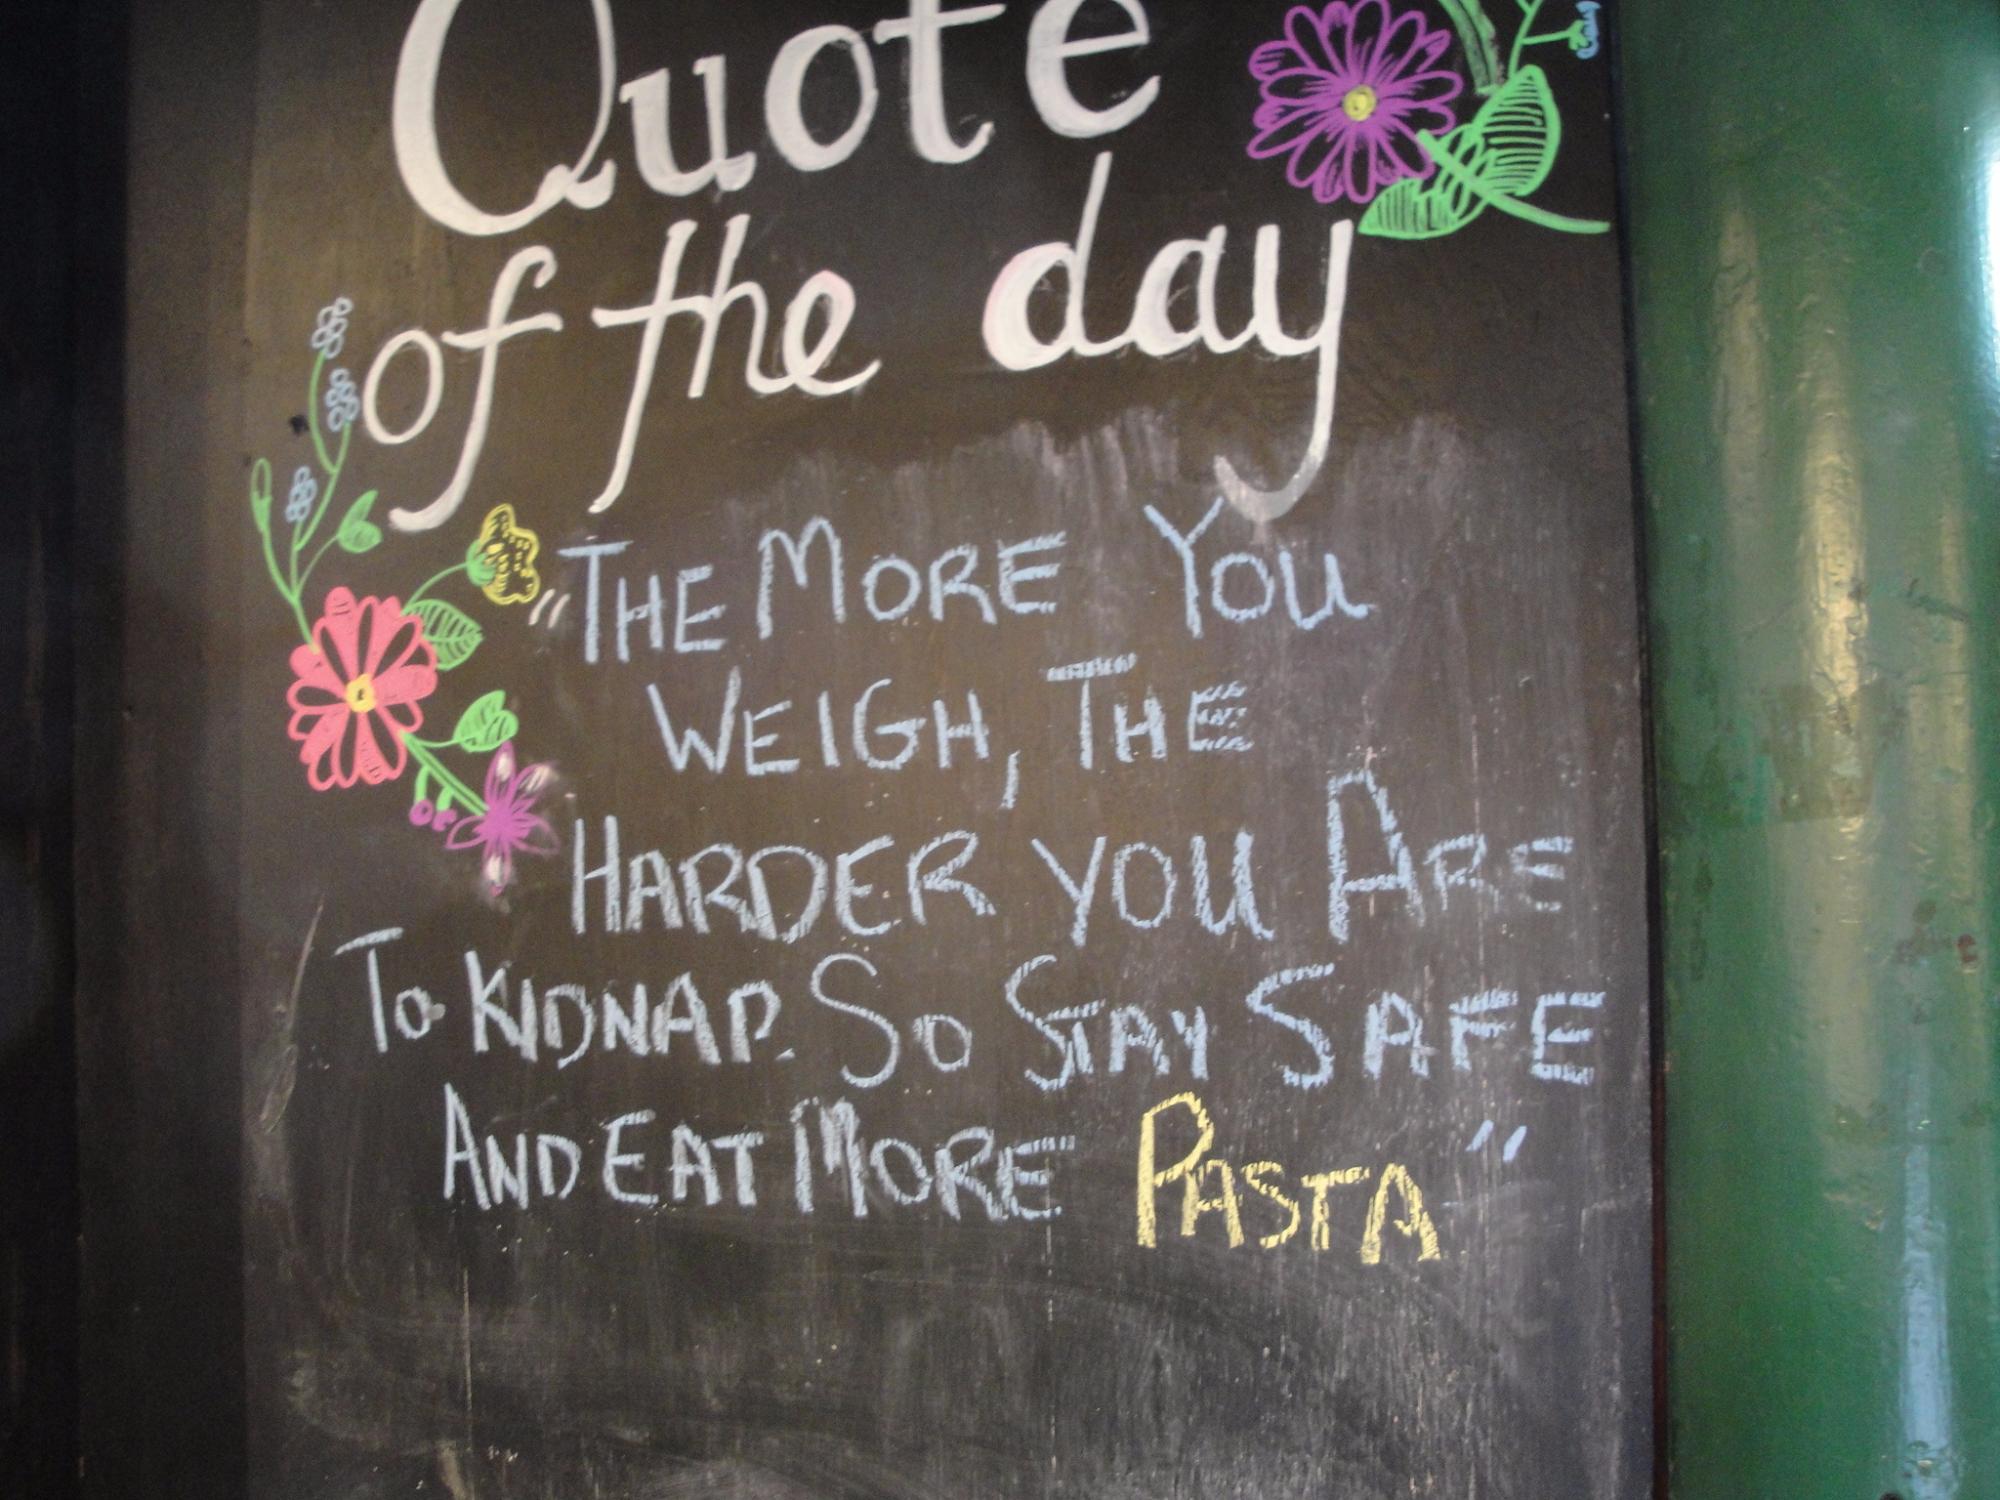 Quote
of the day
"THE MORE YOU
WEIGH, THE
HARDER YOU ARE
TO KIDNAP. SO STAY SAFE
AND EAT MORE PASTA"